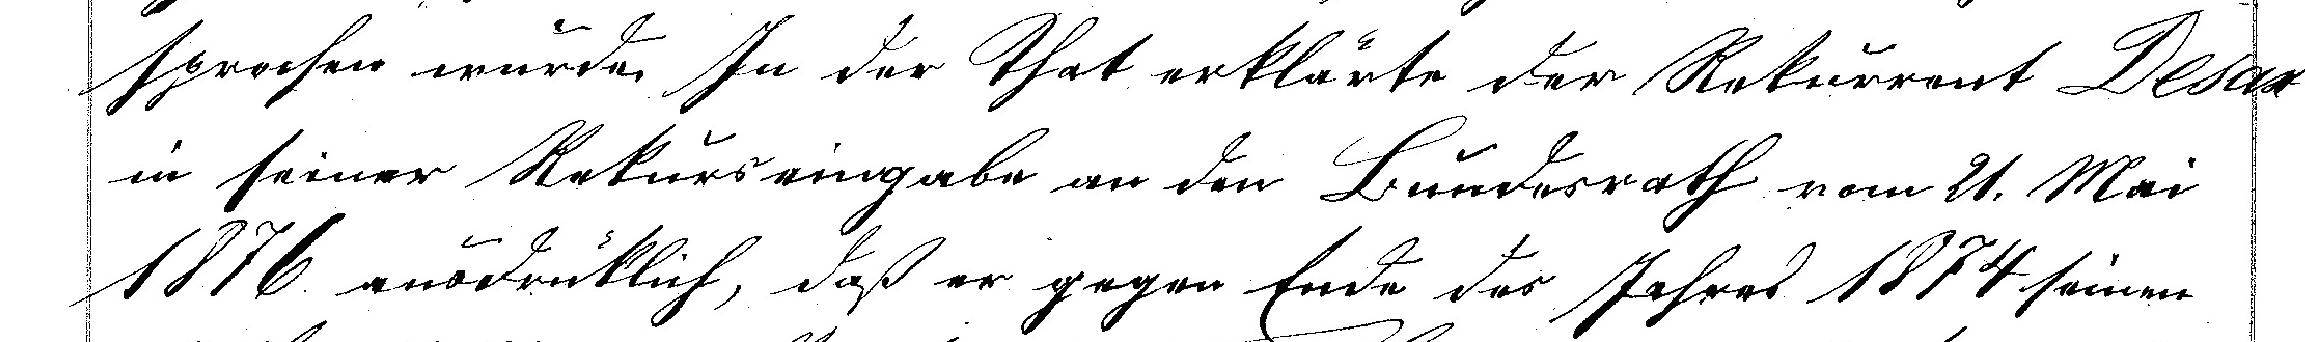 sprochen wurde. In der That erklärte der Rekurrent Desar
in seiner Rekurseingabe an den Bundesrath vom 21. Mai
1876 ausdrüklich, daß er gegen Ende des Jahres 1874 seinen